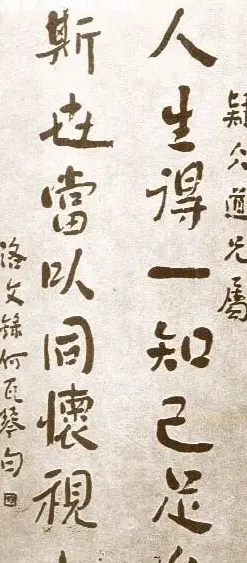 疑仌道兄屬
人生得一知己足
斯世當以同懷視
洛文錄何瓦琴句